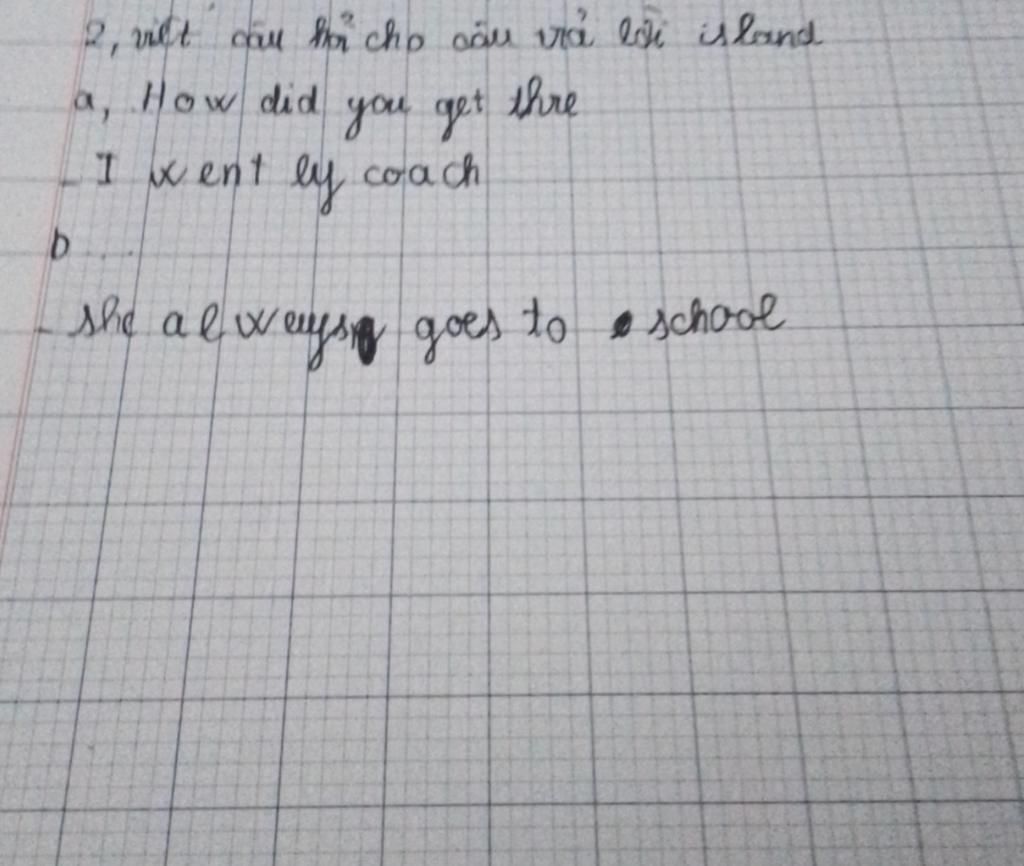 2, viết câu hỏi cho câu trả lời island
a, How did you get thre
- I went by coach
b ...
- she always goes to school